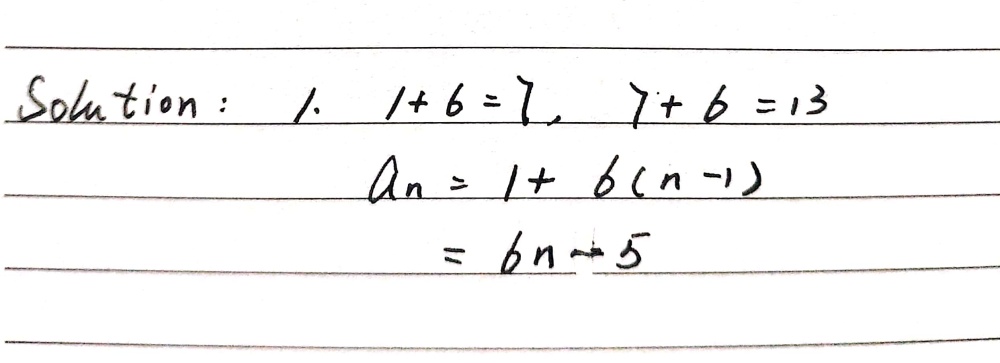 Solution: 1. 1+6=7, 7+6=13
an = 1+ 6(n-1)
= 6n-5